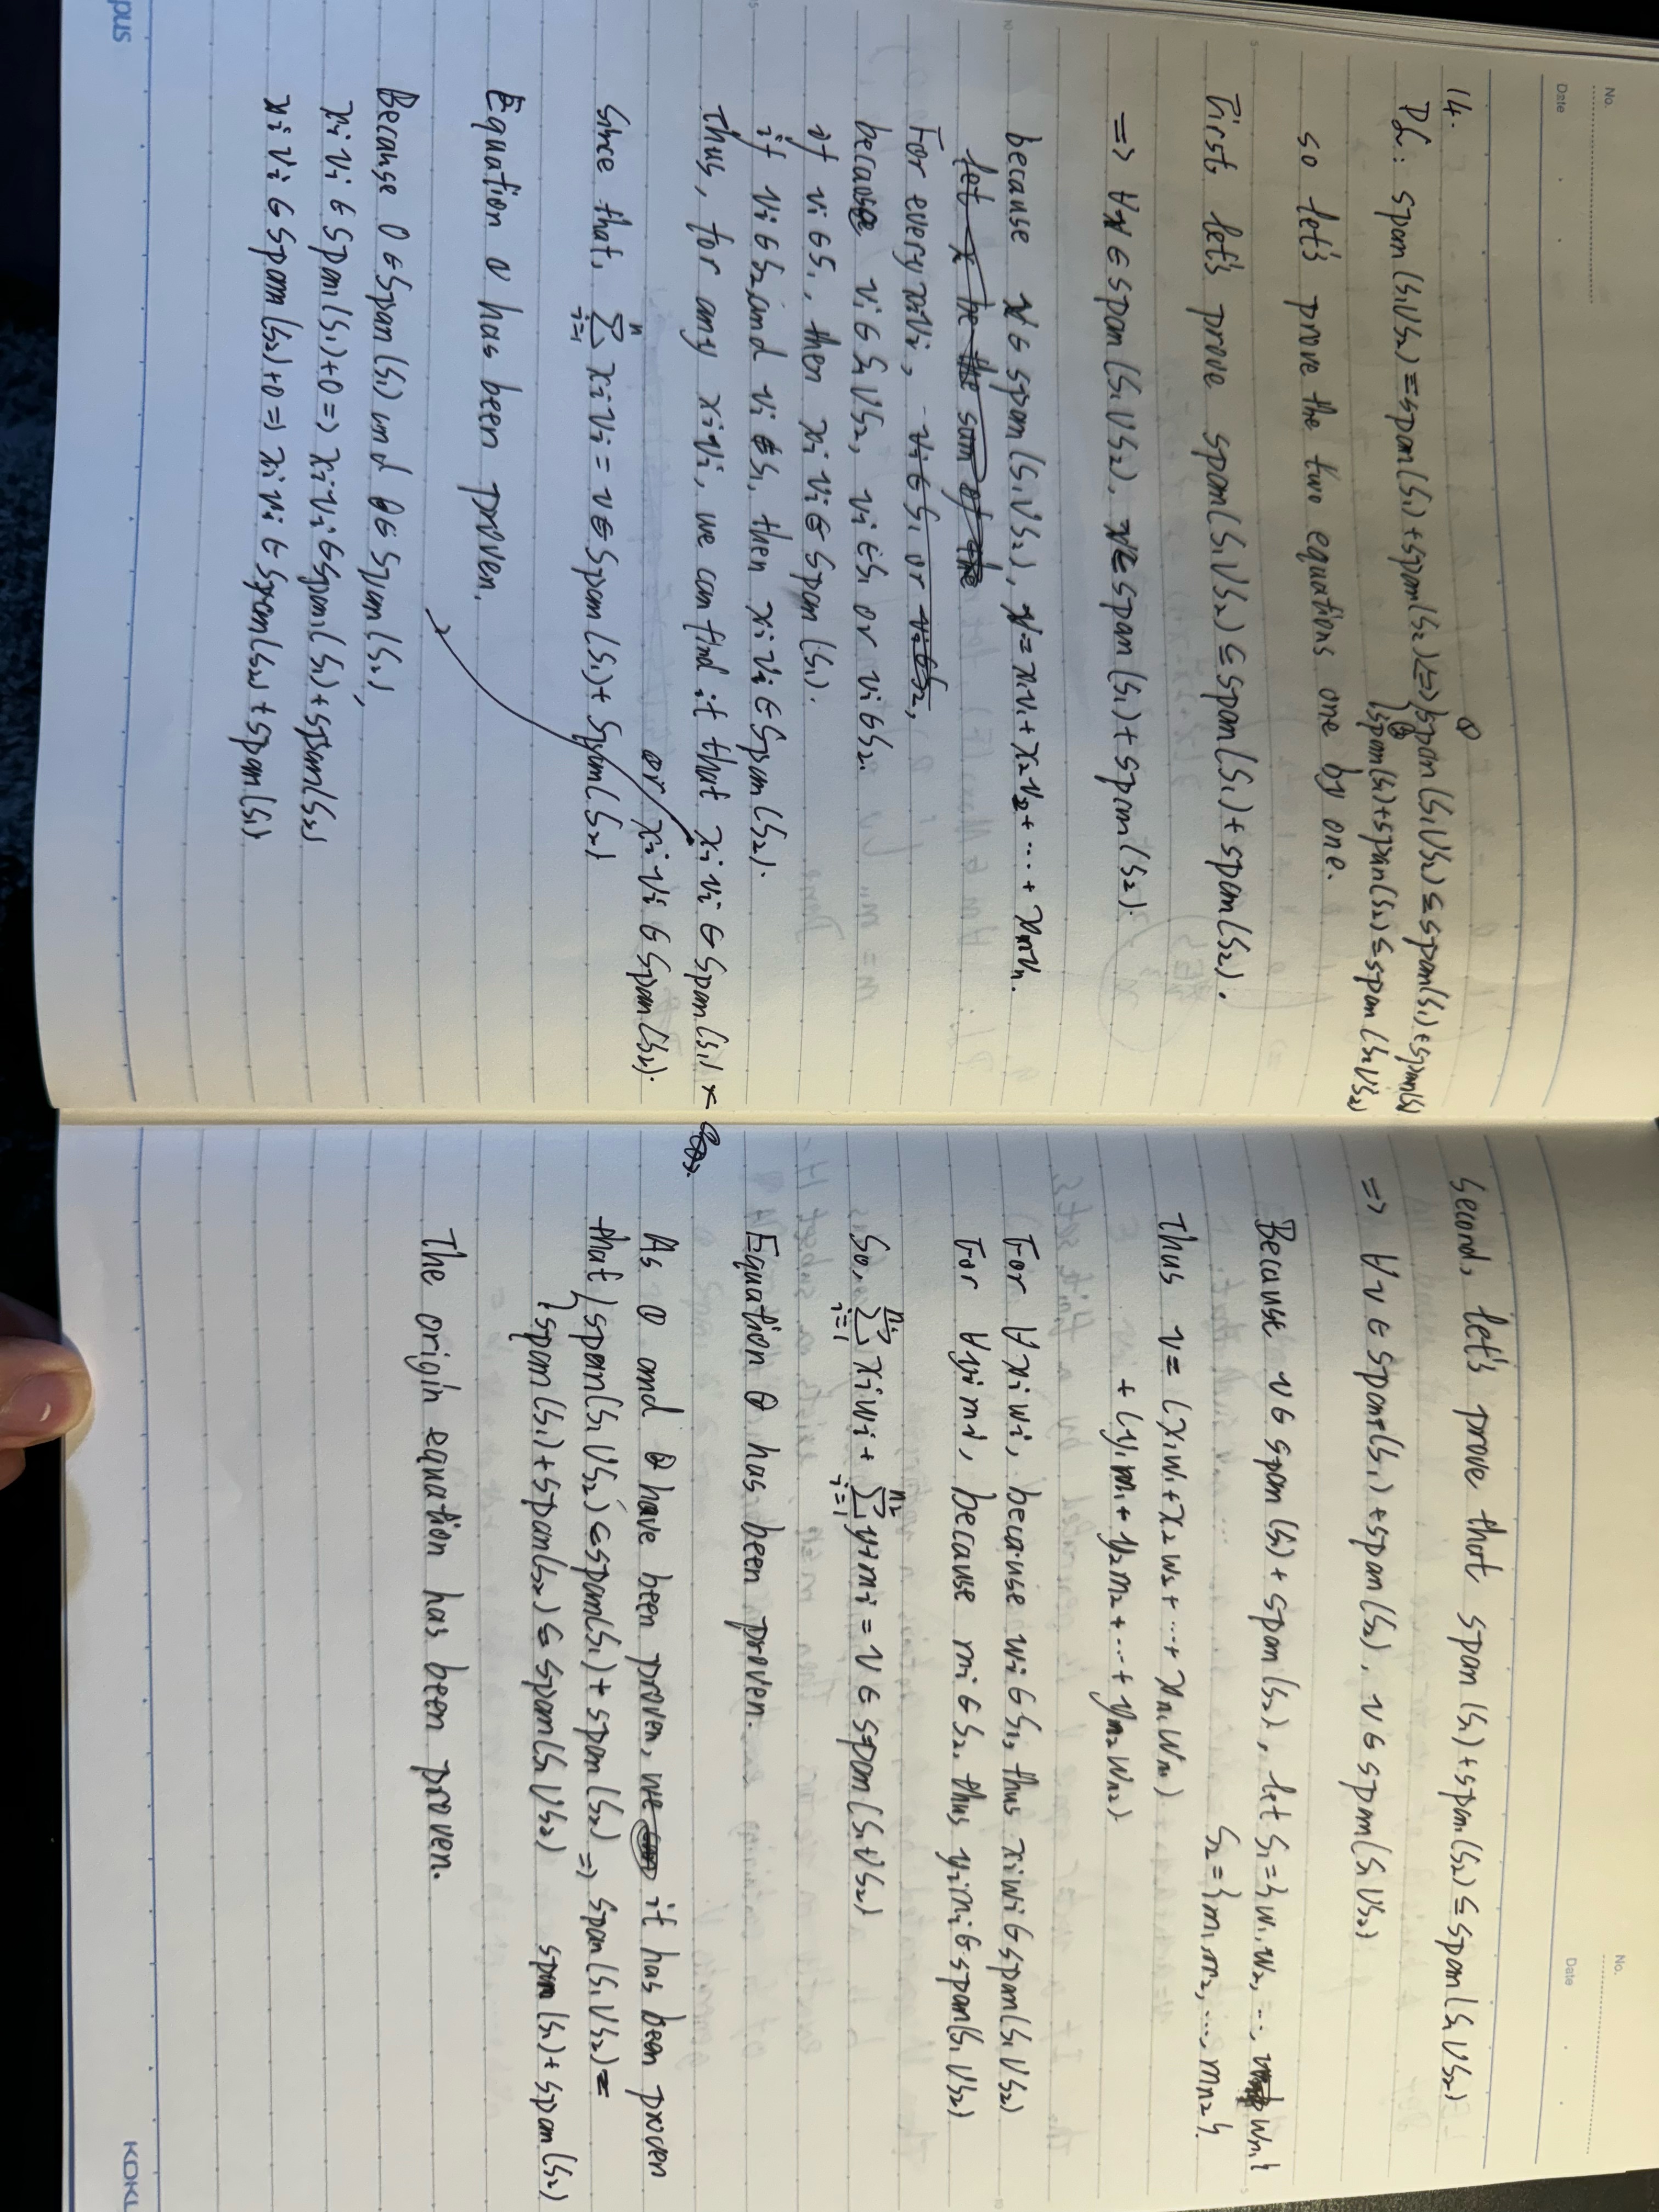 No.
Date
14.
Pf: span(S₁∪S₂)=span(S₁)+span(S₂)<=>{①span(S₁∪S₂)⊆span(S₁)+span(S₂)
②span(S₁)+span(S₂)⊆span(S₁∪S₂)
so let's prove the two equations one by one.
First let's prove span(S₁∪S₂)⊆span(S₁)+span(S₂).
=> ∀v∈span(S₁∪S₂), v∈span(S₁)+span(S₂).
because v∈span(S₁∪S₂), v=x₁v₁+x₂v₂+⋯+xₙvₙ.
let x be the sum of the
For every xᵢvᵢ, vᵢ∈S₁ or vᵢ∈S₂,
because vᵢ∈S₁∪S₂, vᵢ∈S₁ or vᵢ∈S₂.
if vᵢ∈S₁, then xᵢvᵢ∈span(S₁).
if vᵢ∈S₂ and vᵢ∉S₁, then xᵢvᵢ∈span(S₂).
Thus, for any xᵢvᵢ, we can find it that xᵢvᵢ∈span(S₁)
or xᵢvᵢ∈span(S₂).
Since that, ∑ᵢ₌₁ⁿ xᵢvᵢ=v∈span(S₁)+span(S₂)
Equation ① has been proven.
Because 0∈span(S₁) and 0∈span(S₂),
xᵢvᵢ∈span(S₁)+0=>xᵢvᵢ∈span(S₁)+span(S₂)
xᵢvᵢ∈span(S₂)+0=>xᵢvᵢ∈span(S₂)+span(S₁)
pus
No.
Date
Second, let's prove that span(S₁)+span(S₂)⊆span(S₁∪S₂)
=> ∀v∈span(S₁)+span(S₂), v∈span(S₁∪S₂)
Because v∈span(S₁)+span(S₂), let S₁={w₁,w₂,⋯,wₙ₁}
S₂={m₁,m₂,⋯,mₙ₂}.
Thus v=(x₁w₁+x₂w₂+⋯+xₙ₁wₙ₁)
+(y₁m₁+y₂m₂+⋯+yₙ₂wₙ₂)
For ∀xᵢwᵢ, because wᵢ∈S₁, thus xᵢwᵢ∈span(S₁∪S₂)
For ∀yᵢmᵢ, because mᵢ∈S₂, thus yᵢmᵢ∈span(S₁∪S₂)
So, ∑ᵢ₌₁ⁿ¹ xᵢwᵢ+∑ᵢ₌₁ⁿ² yᵢmᵢ=v∈span(S₁∪S₂)
Equation ② has been proven.
As ① and ② have been proven, we it has been proven
that {span(S₁∪S₂)⊆span(S₁)+span(S₂) => span(S₁∪S₂)=
{span(S₁)+span(S₂)⊆span(S₁∪S₂) span(S₁)+span(S₂)
The origin equation has been proven.